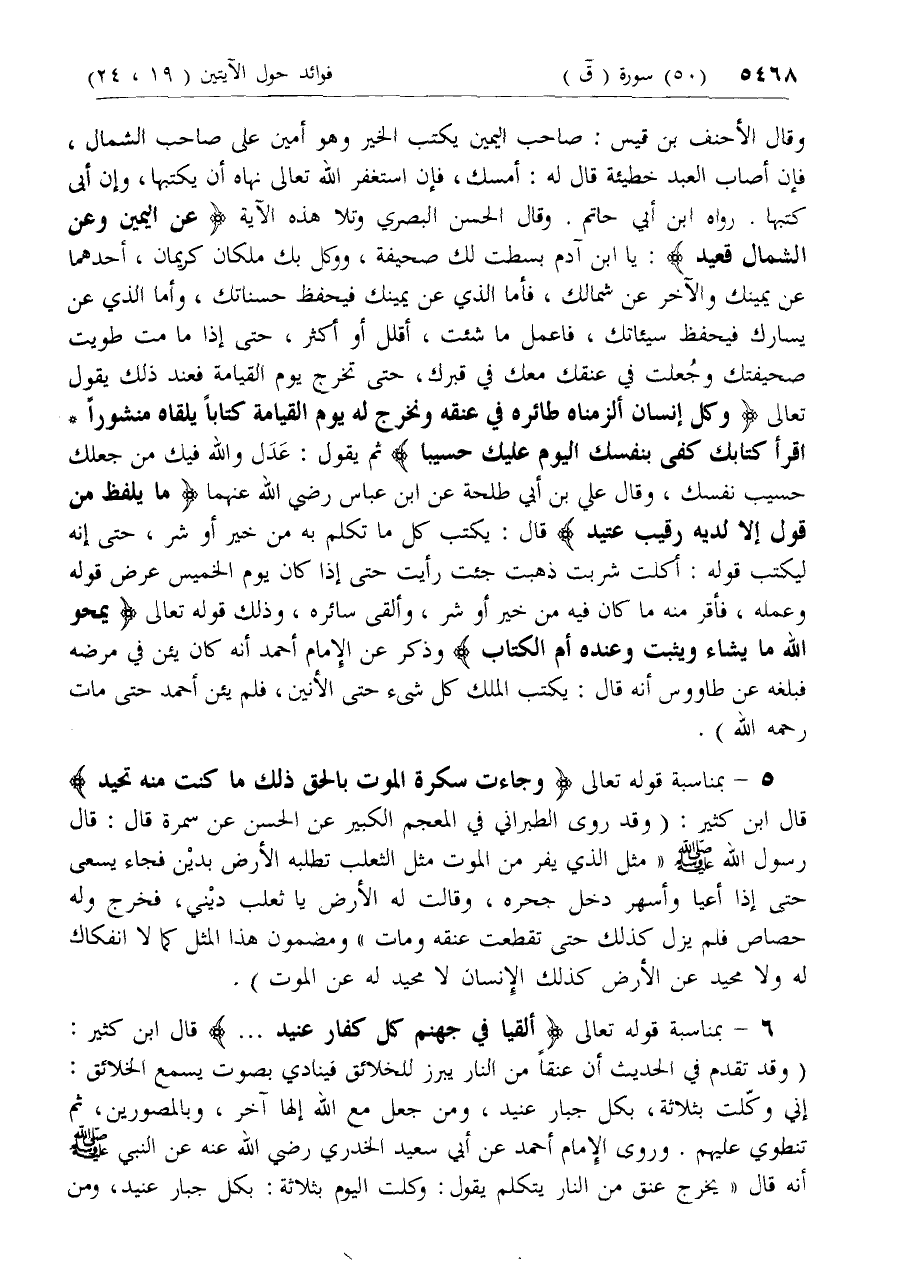 ٥٤٦٨ (٥٠) سورة ( قٓ ) فوائد حول الآيتين ( ١٩ ، ٢٤ )
وقال الأحنف بن قيس : صاحب اليمين يكتب الخير وهو أمين على صاحب الشمال ،
فإن أصاب العبد خطيئة قال له : أمسك ، فإن استغفر الله تعالى نهاه أن يكتبها ، وإن أبى
كتبها . رواه ابن أبي حاتم . وقال الحسن البصري وتلا هذه الآية ﴿ عن اليمين وعن
الشمال قعيد ﴾ : يا ابن آدم بسطت لك صحيفة ، ووكل بك ملكان كريمان ، أحدهما
عن يمينك والآخر عن شمالك ، فأما الذي عن يمينك فيحفظ حسناتك ، وأما الذي عن
يسارك فيحفظ سيئاتك ، فاعمل ما شئت ، أقلل أو أكثر ، حتى إذا ما مت طويت
صحيفتك وجُعلت في عنقك معك في قبرك ، حتى تخرج يوم القيامة فعند ذلك يقول
تعالى ﴿ وكل إنسان ألزمناه طائره في عنقه ونخرج له يوم القيامة كتاباً يلقاه منشوراً *
اقرأ كتابك كفى بنفسك اليوم عليك حسيبا ﴾ ثم يقول : عَدَل والله فيك من جعلك
حسيب نفسك ، وقال علي بن أبي طلحة عن ابن عباس رضي الله عنهما ﴿ ما يلفظ من
قول إلا لديه رقيب عتيد ﴾ قال : يكتب كل ما تكلم به من خير أو شر ، حتى إنه
ليكتب قوله : أكلت شربت ذهبت جئت رأيت حتى إذا كان يوم الخميس عرض قوله
وعمله ، فأقر منه ما كان فيه من خير أو شر ، وألقى سائره ، وذلك قوله تعالى ﴿ يمحو
الله ما يشاء ويثبت وعنده أم الكتاب ﴾ وذكر عن الإمام أحمد أنه كان يئن في مرضه
فبلغه عن طاووس أنه قال : يكتب الملك كل شيء حتى الأنين ، فلم يئن أحمد حتى مات
رحمه الله ) .
٥ - بمناسبة قوله تعالى ﴿ وجاءت سكرة الموت بالحق ذلك ما كنت منه تحيد ﴾
قال ابن كثير : ( وقد روى الطبراني في المعجم الكبير عن الحسن عن سمرة قال : قال
رسول الله ﷺ « مثل الذي يفر من الموت مثل الثعلب تطلبه الأرض بديْن فجاء يسعى
حتى إذا أعيا وأسهر دخل جحره ، وقالت له الأرض يا ثعلب ديْني ، فخرج وله
حصاص فلم يزل كذلك حتى تقطعت عنقه ومات » ومضمون هذا المثل كما لا انفكاك
له ولا محيد عن الأرض كذلك الإنسان لا محيد له عن الموت ) .
٦ - بمناسبة قوله تعالى ﴿ ألقيا في جهنم كل كفار عنيد ... ﴾ قال ابن كثير :
( وقد تقدم في الحديث أن عنقاً من النار يبرز للخلائق فينادي بصوت يسمع الخلائق :
إني وكّلت بثلاثة ، بكل جبار عنيد ، ومن جعل مع الله إلها آخر ، وبالمصورين ، ثم
تنطوي عليهم . وروى الإمام أحمد عن أبي سعيد الخدري رضي الله عنه عن النبي ﷺ
أنه قال « يخرج عنق من النار يتكلم يقول : وكلت اليوم بثلاثة : بكل جبار عنيد ، ومن